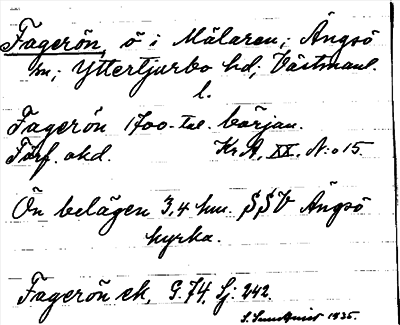 Fagerön, ö i Mälaren; Ängsö
sn; Yttertjurbo hd; Västmanl.
l.
Fagerön 1700-tal. början.
Förf. okd. Kr A. XX. N:o 15.
Ön belägen 3,4 km. SSV Ängsö
kyrka.
Fagerön ek, G. 74, Lj: 242.
1935.